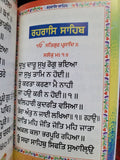 ਰਹਰਾਸਿ ਸਾਹਿਬ
ੴ ਸਤਿਗੁਰ ਪ੍ਰਸਾਦਿ ॥
ਸਲੋਕੁ ਮਃ ੧ ॥
ਦੁਖੁ ਦਾਰੂ ਸੁਖੁ ਰੋਗੁ ਭਇਆ
ਜਾ ਸੁਖੁ ਤਾਮਿ ਨ ਹੋਈ ॥
ਤੂੰ ਕਰਤਾ ਕਰਣਾ ਮੈ ਨਾਹੀ
ਜਾ ਹਉ ਕਰੀ ਨ ਹੋਈ ॥੧॥
ਬਲਿਹਾਰੀ ਕੁਦਰਤਿ ਵਸਿਆ ॥
ਤੇਰਾ ਅੰਤੁ ਨ ਜਾਈ ਲਖਿਆ
ਜਾਤਿ ਮਹਿ ਜੋਤਿ ਜੋਤਿ ਮਹਿ ਜਾਤਾ
ਅਕਲ ਕਲਾ ਭਰਪੂਰਿ ਰਹਿਆ ॥
ਤੂੰ ਸਚਾ ਸਾਹਿਬੁ ਸਿਫਤਿ ਸੁਆਲਿ੍ਉ